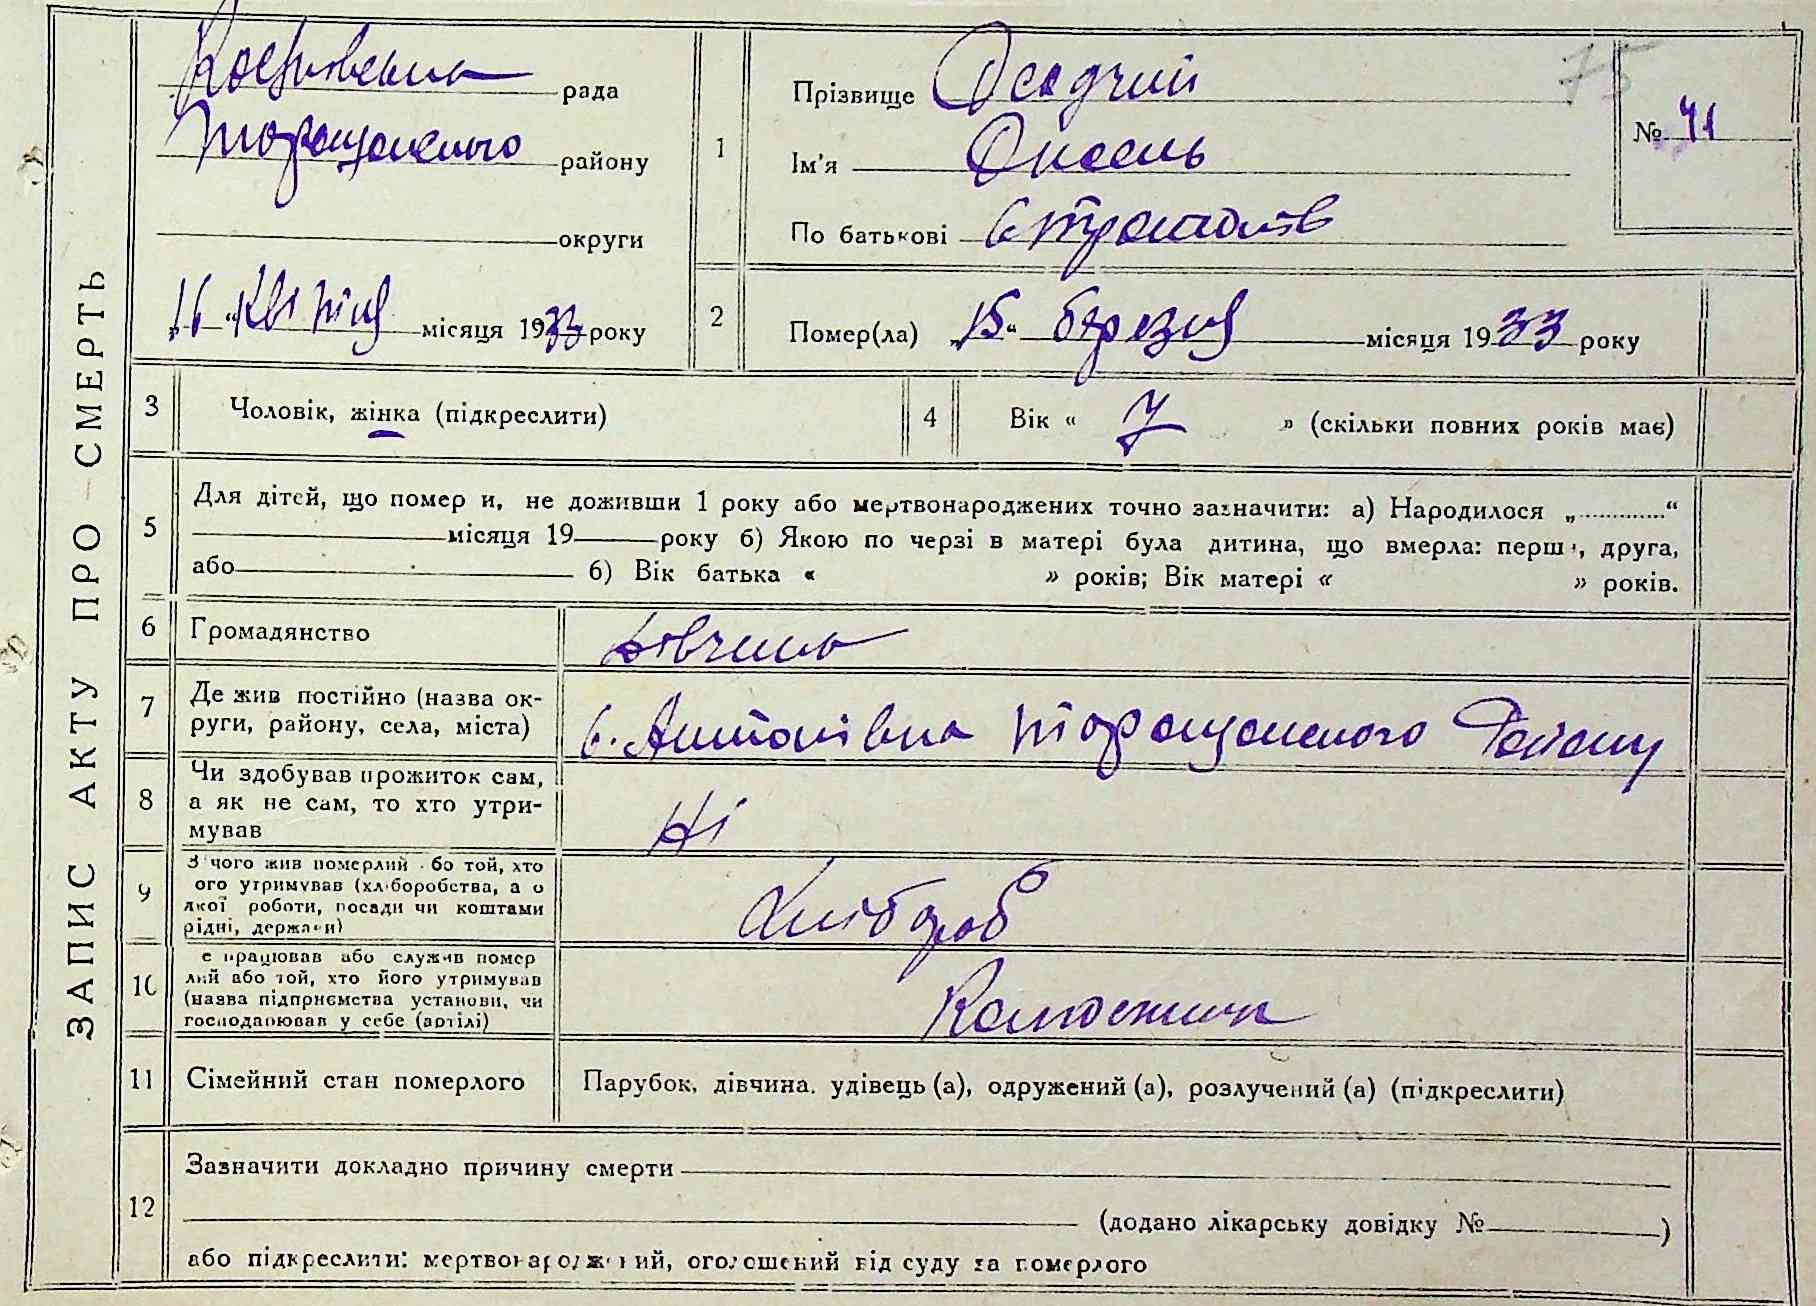 ЗАПИС АКТУ ПРО СМЕРТЬ
рада
Таращанського району
округи
„16“ Квітня місяця 1933 року
75
№ 71
1
Прізвище Осадчий
Ім'я
По батькові
2
Помер(ла) „15“ березня місяця 1933 року
3
Чоловік, жінка (підкреслити)
4
Вік « 7 » (скільки повних років має)
5
Для дітей, що помер и, не доживши 1 року або мертвонароджених точно зазначити: а) Народилося „............“
місяця 19 року б) Якою по черзі в матері була дитина, що вмерла: перш , друга,
або б) Вік батька « » років; Вік матері « » років.
6
Громадянство
7
Де жив постійно (назва ок-
руги, району, села, міста)
с. Антонівка Таращанського Району
8
Чи здобував прожиток сам,
а як не сам, то хто утри-
мував
Ні
9
З чого жив померлий бо той, хто
ого утримував (хл боробства, а о
якої роботи, посади чи коштами
рідні, держави)
Хлібороб
10
е працював або служив помер
лий або той, хто його утримував
(назва підприємства установи, чи
господарював у себе (артілі)
Колгоспник
11
Сімейний стан померлого
Парубок, дівчина. удівець (а), одружений (а), розлучений (а) (підкреслити)
12
Зазначити докладно причину смерти
(додано лікарську довідку № )
або підкреслити: мертвонароджений, оголошений від суду за померлого